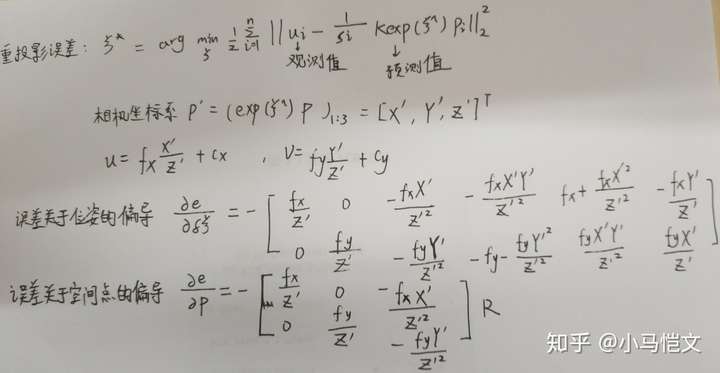 重投影误差: ξ* = arg min_ξ 1/2 Σ_{i=1}^{n} ||u_i - 1/s_i K exp(ξ^) P_i||_2^2
↓观测值 ↓预测值
相机坐标系 P' = (exp(ξ^) P)_{1:3} = [X', Y', Z']^T
u = fx X'/Z' + cx , V = fy Y'/Z' + cy
误差关于位姿的偏导 ∂e/∂δξ = - [ fx/Z' 0 -fxX'/Z'^2 -fxX'Y'/Z'^2 fx+fxX'^2/Z'^2 -fxY'/Z'
0 fy/Z' -fyY'/Z'^2 -fy-fyY'^2/Z'^2 fyX'Y'/Z'^2 fyX'/Z' ]
误差关于空间点的偏导 ∂e/∂P = - [ fx/Z' 0 -fxX'/Z'^2
0 fy/Z' -fyY'/Z'^2 ] R
知乎 @小马恺文